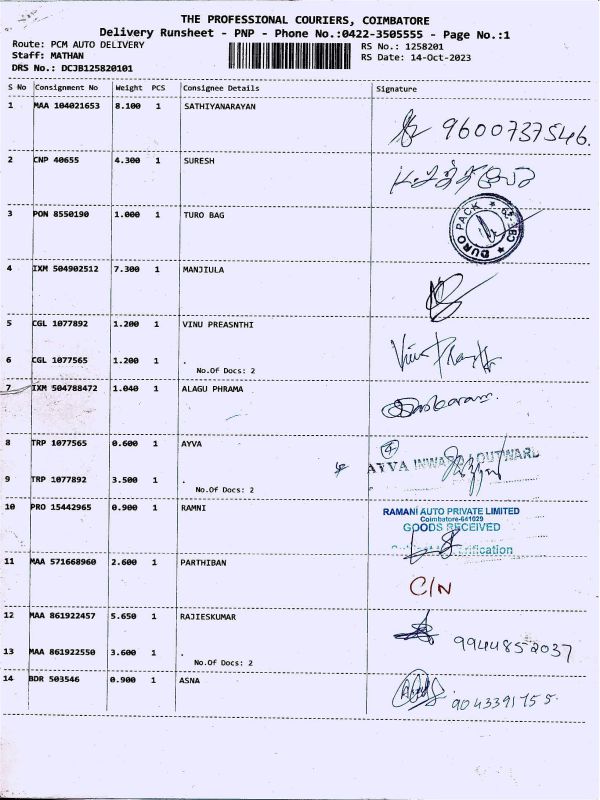 THE PROFESSIONAL COURIERS, COIMBATORE
Delivery Runsheet - PNP - Phone No.:0422-3505555 - Page No.:1
Route: PCM AUTO DELIVERY
RS No.: 1258201
Staff: MATHAN
RS Date: 14-Oct-2023
DRS No.: DCJB125820101
S No Consignment No Weight PCS Consignee Details Signature
1 MAA 104021653 8.100 1 SATHIYANARAYAN
9600737546.
2 CNP 40655 4.300 1 SURESH
3 PON 8550190 1.000 1 TURO BAG
DURO PACK * CBE-29 *
4 IXM 504902512 7.300 1 MANJIULA
5 CGL 1077892 1.200 1 VINU PREASNTHI
6 CGL 1077565 1.200 1 .
No.Of Docs: 2
7 IXM 504788472 1.040 1 ALAGU PHRAMA
8 TRP 1077565 0.600 1 AYVA
4
AYVA INWARD / OUTWARD
9 TRP 1077892 3.500 1 .
No.Of Docs: 2
10 PRO 15442965 0.900 1 RAMNI
RAMANI AUTO PRIVATE LIMITED
Coimbatore-641029
GOODS RECEIVED
11 MAA 571668960 2.600 1 PARTHIBAN
C/N
12 MAA 861922457 5.650 1 RAJIESKUMAR
9944852037
13 MAA 861922550 3.600 1 .
No.Of Docs: 2
14 BDR 503546 0.900 1 ASNA
9043391755.